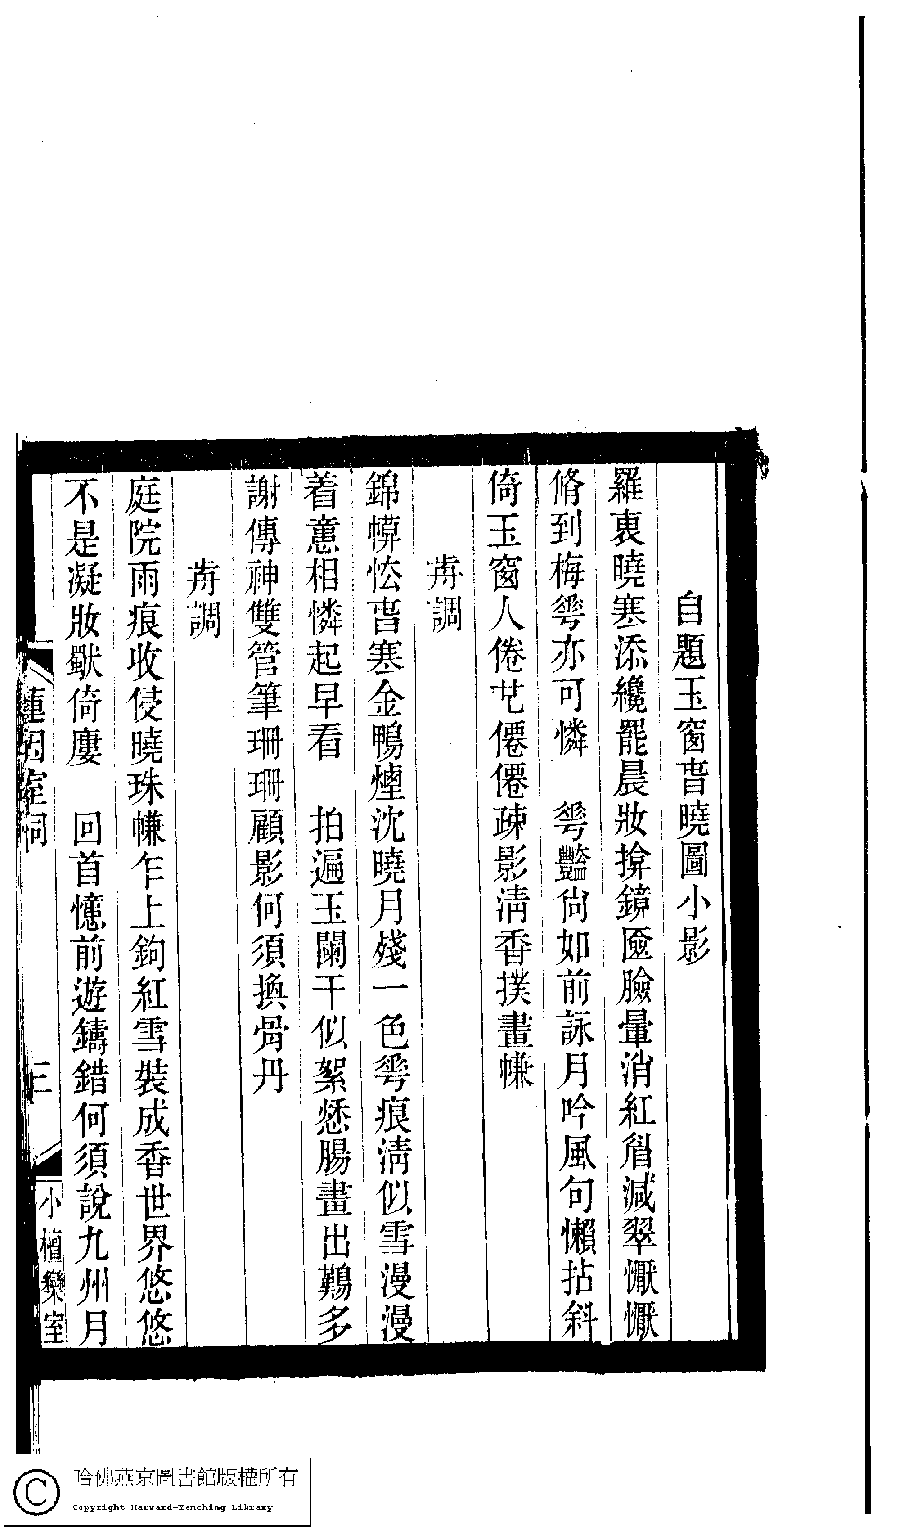 自題玉窗旾曉圖小影
羅衷曉寒添纔罷晨妝揜鏡匳臉暈消紅眉減翠懨懨
脩到梅䔢亦可憐　䔢豔尙如前詠月吟風句懶拈斜
倚玉窗人倦也僊僊疎影淸香撲畫㡘
歬調
錦幙怯旾寒金鴨煙沈曉月殘一色䔢痕淸似雪漫漫
着意相憐起早看　拍遍玉闌干似絮愁腸畫出難多
謝傳神雙管筆珊珊顧影何須換骨丹
歬調
庭院雨痕收侵曉珠㡘乍上鉤紅雪裝成香世界悠悠
不是凝妝獃倚廔　回首憶前遊鑄錯何須說九州月
蓮因室詞
三
小檀欒室
哈佛燕京圖書館版權所有
Copyright Harvard-Yenching Library